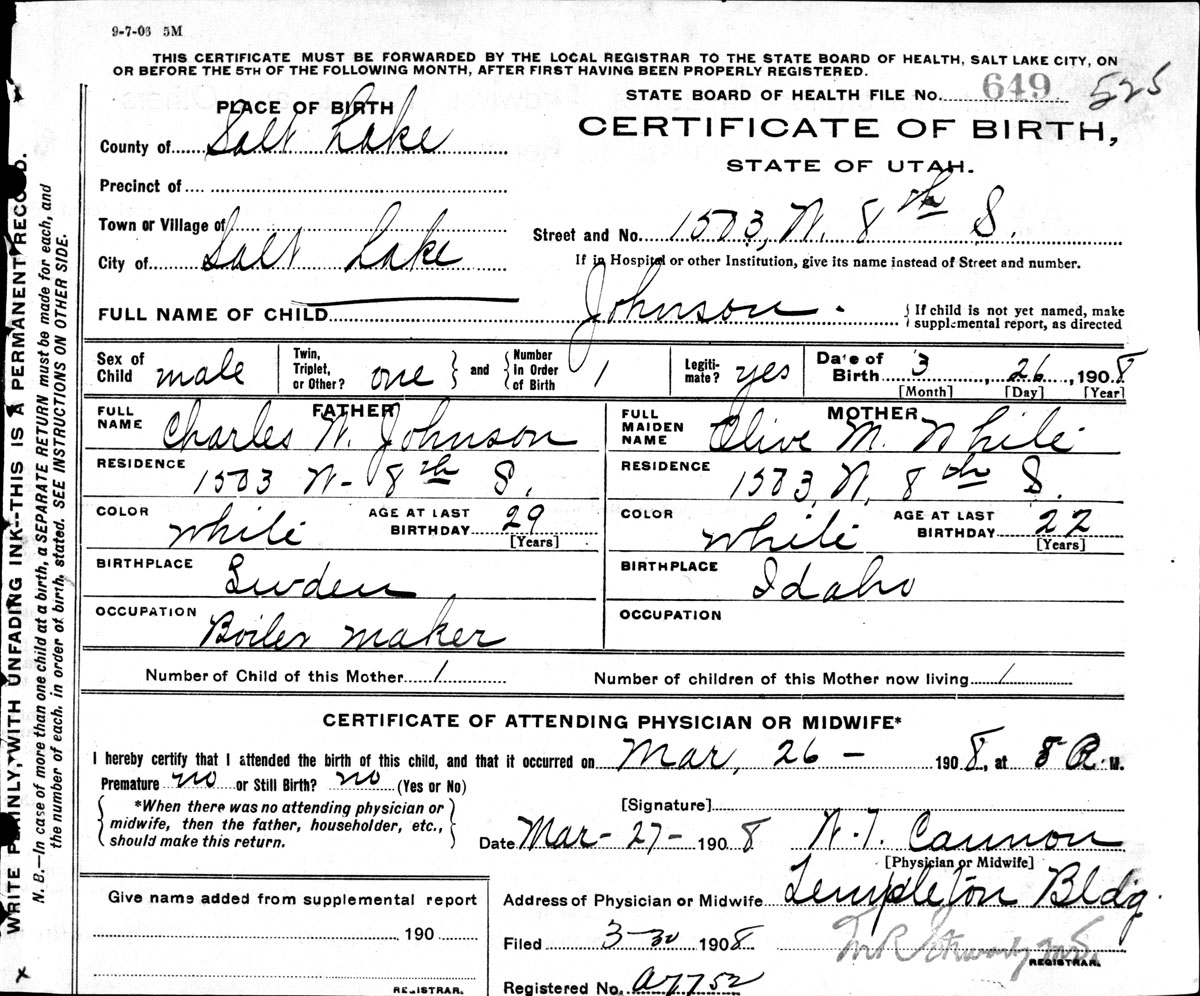 9-7-06 5M
THIS CERTIFICATE MUST BE FORWARDED BY THE LOCAL REGISTRAR TO THE STATE BOARD OF HEALTH, SALT LAKE CITY, ON
OR BEFORE THE 5TH OF THE FOLLOWING MONTH, AFTER FIRST HAVING BEEN PROPERLY REGISTERED.
STATE BOARD OF HEALTH FILE No. 649 525
PLACE OF BIRTH
CERTIFICATE OF BIRTH,
County of Salt Lake
STATE OF UTAH.
Precinct of
Town or Village of
Street and No. 1503, W. 8th S.
City of Salt Lake
If in Hospital or other Institution, give its name instead of Street and number.
FULL NAME OF CHILD Johnson. {If child is not yet named, make
supplemental report, as directed
Sex of Child male Twin, Triplet, or Other? one and Number in Order of Birth 1 Legiti-mate? yes Date of Birth 3, 26, 1908
[Month] [Day] [Year]
FATHER
MOTHER
FULL NAME Charles W. Johnson
FULL MAIDEN NAME Olive M. White
RESIDENCE 1503 W- 8th S.
RESIDENCE 1503, W. 8th S.
COLOR White AGE AT LAST BIRTHDAY 29 [Years]
COLOR White AGE AT LAST BIRTHDAY 22 [Years]
BIRTHPLACE Swden
BIRTHPLACE Idaho
OCCUPATION Boiler maker
OCCUPATION
Number of Child of this Mother 1 Number of children of this Mother now living 1
CERTIFICATE OF ATTENDING PHYSICIAN OR MIDWIFE*
I hereby certify that I attended the birth of this child, and that it occurred on Mar, 26 - 1908, at M.
Premature no or Still Birth? no (Yes or No)
{*When there was no attending physician or
midwife, then the father, householder, etc.,
should make this return.}
[Signature]
Date Mar- 27- 1908 W.T. Cannon
[Physician or Midwife]
Give name added from supplemental report
Address of Physician or Midwife Templeton Bldg.
190
Filed 3-30 1908
REGISTRAR.
Registered No. a7752
REGISTRAR.
WRITE PLAINLY, WITH UNFADING INK--THIS IS A PERMANENT RECORD.
N. B.--In case of more than one child at a birth, a SEPARATE RETURN must be made for each, and
the number of each, in order of birth, stated. SEE INSTRUCTIONS ON OTHER SIDE.